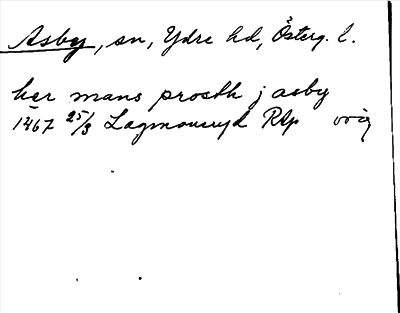 Asby, sn, Ydre hd, Österg. l.
her mans prosth j asby
1467 25/3 Lagmansryd RAp orig